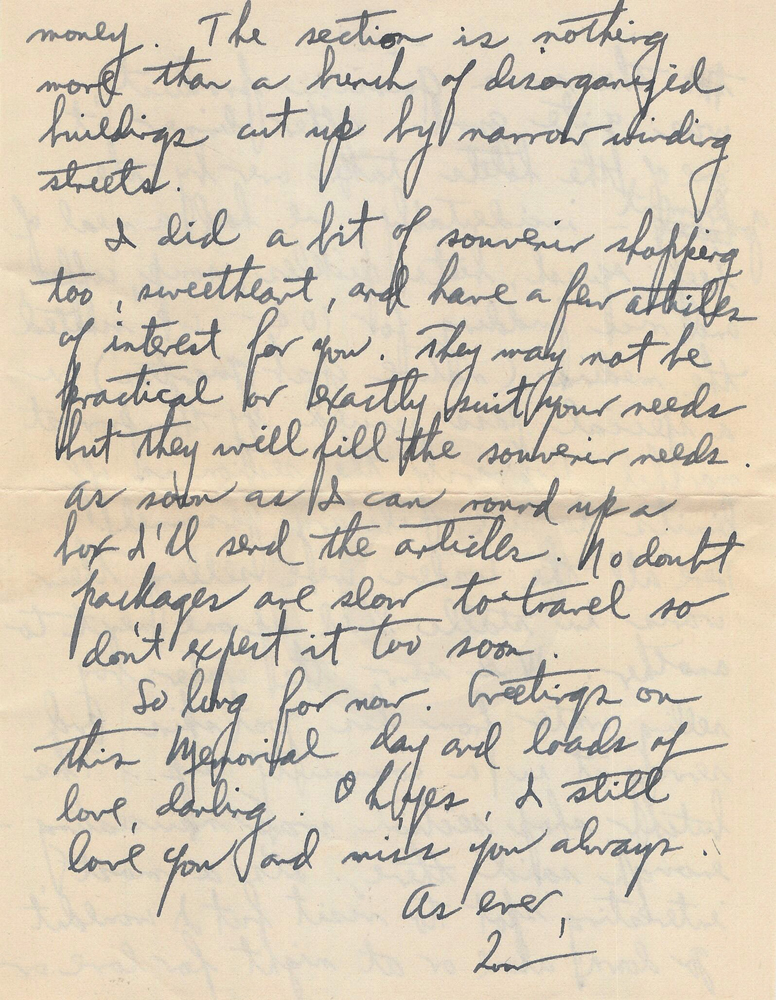 money. The section is nothing
more than a bunch of disorganized
buildings cut up by narrow winding
streets.
I did a bit of souvenir shopping
too, sweetheart, and have a few articles
of interest for you. They may not be
practical or exactly suit your needs
but they will fill the souvenir needs.
As soon as I can round up a
box I'll send the articles. No doubt
packages are slow to travel so
don't expect it too soon.
So long for now. Greetings on
this Memorial day and loads of
love, darling. O h, yes, I still
love you and miss you always.
As ever,